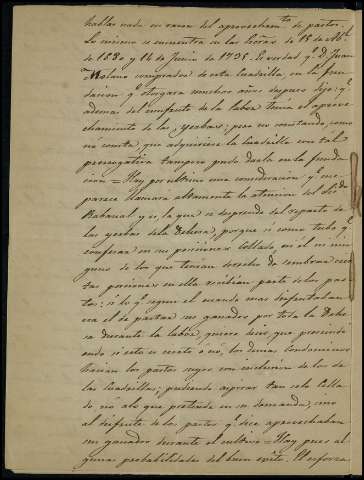 hablar nada en razon del aprovecham.to de pastos.
Lo mismo se encuentra en las hechas de 15 de Ab.l
de 1580 y 14 de Junio de 1738. Es verdad q.e D. Juan
Molano comprador de esta Cuadrilla, en la fun-
dacion q.e otorgara muchos años despues dijo q.e
ademas del usufruto de la labor tenia el aprove-
chamiento de las yerbas; pero no constando, como
no consta, que adquiriera la Cuadrilla con tal
prerrogativa tampoco pudo darla en la funda-
cion = Hay por ultimo una consideracion q.e me
parece llamara altamente la atencion del
Rabanal y es, la que se desprende del reparto de
las yerbas de la Dehesa, porque si como tubo q.e
confesar en sus posiciones Collado, en él ni nin-
guno de los que tenian derecho de sembrar cier-
tas porciones en ella recibian parte de los pas-
tos: si lo q.e segun él cuando mas disfrutaban
era el de pastar sus ganados por toda la Dehe-
sa durante la labor, quiere decir, que prescindi-
endo si esto es cierto ó nó, los demas condominos
hacian los partes suyos con exclusion de los de
las Cuadrillas; pudiendo aspirar tan solo Colla-
do nó alo que pretende en su demanda, sino
al disfrute de los pastos q.e dice aprovechaban
sus ganados durante el cultivo = Hay pues al-
gunas probabilidades del buen exito. El esforzar